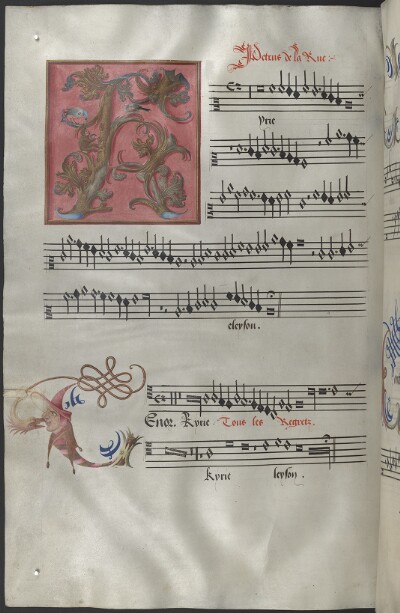 Petrus de la Rue :-
K
yrie
eleyson .
Tenor . Kyrie Tous les Regretz .
kyrie leyson .